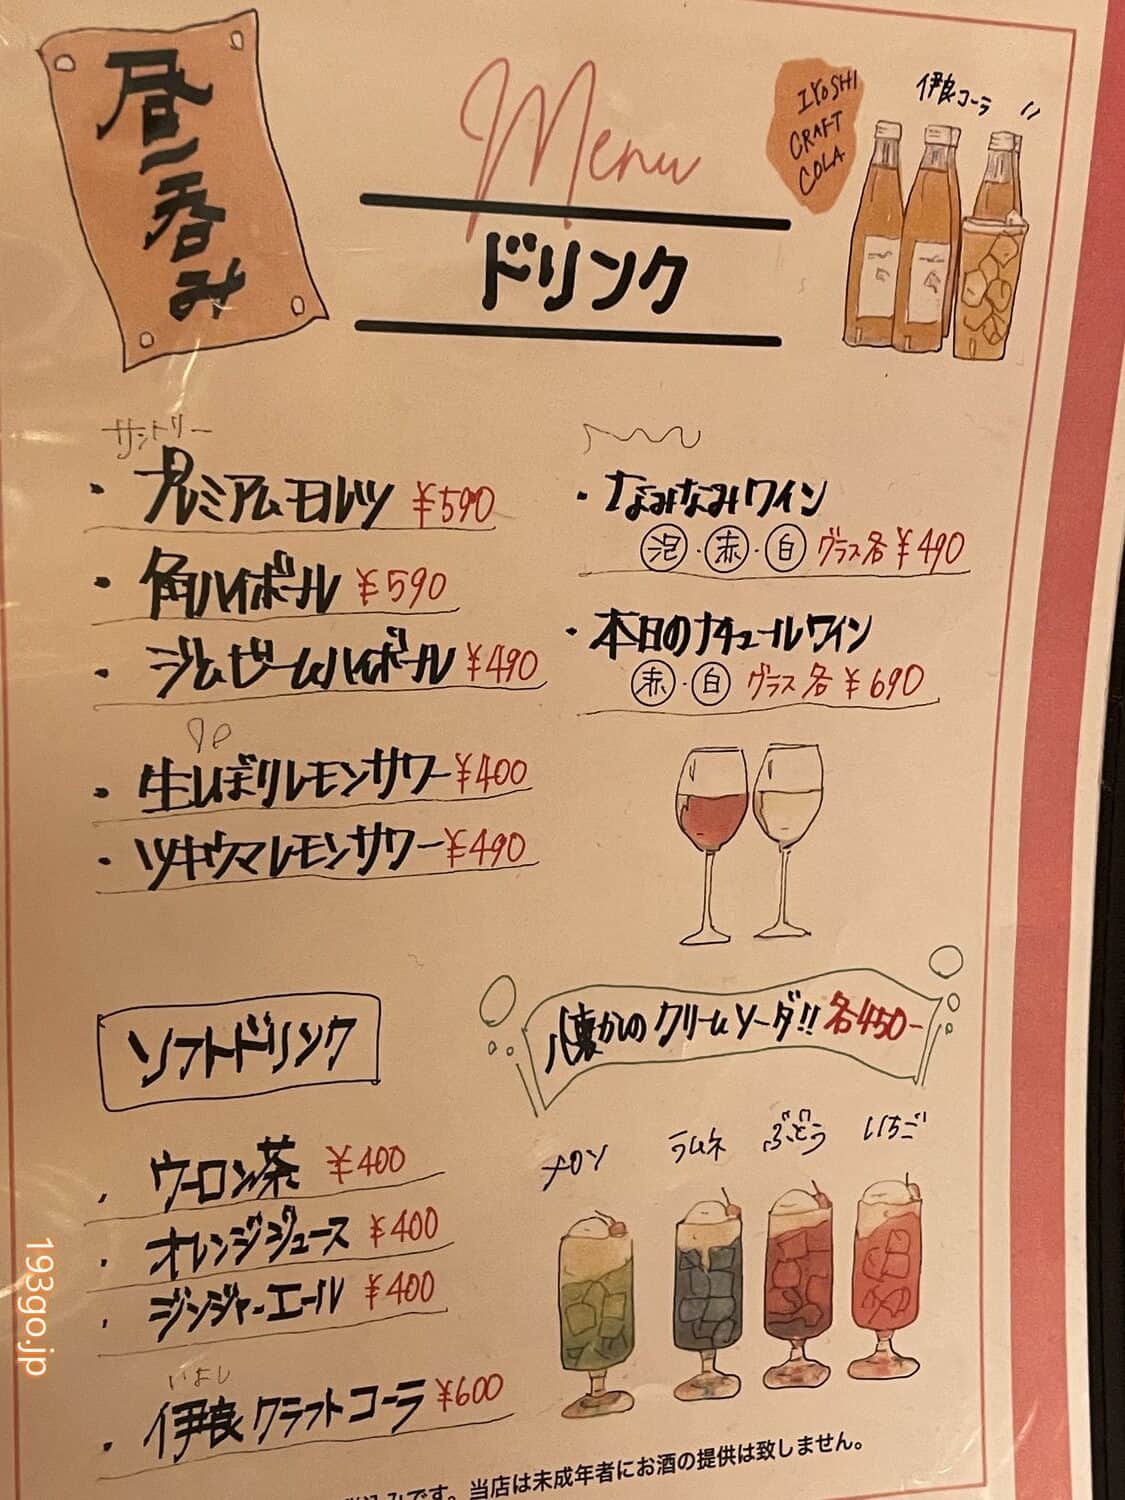 昼呑み
Menu
ドリンク
IYOSHI
CRAFT
COLA
伊良コーラ
サントリー
・プレミアムモルツ ¥590
・角ハイボール ¥590
・ジムビームハイボール ¥490
・生しぼりレモンサワー ¥400
・ツキウマレモンサワー ¥490
・なみなみワイン
泡・赤・白 グラス各 ¥490
・本日のナチュールワイン
赤・白 グラス各 ¥690
ソフトドリンク
・ウーロン茶 ¥400
・オレンジジュース ¥400
・ジンジャーエール ¥400
いよし
・伊良クラフトコーラ ¥600
懐かしのクリームソーダ!! 各450-
メロン
ラムネ
ぶどう
いちご
税込みです。当店は未成年者にお酒の提供は致しません。
193go.jp